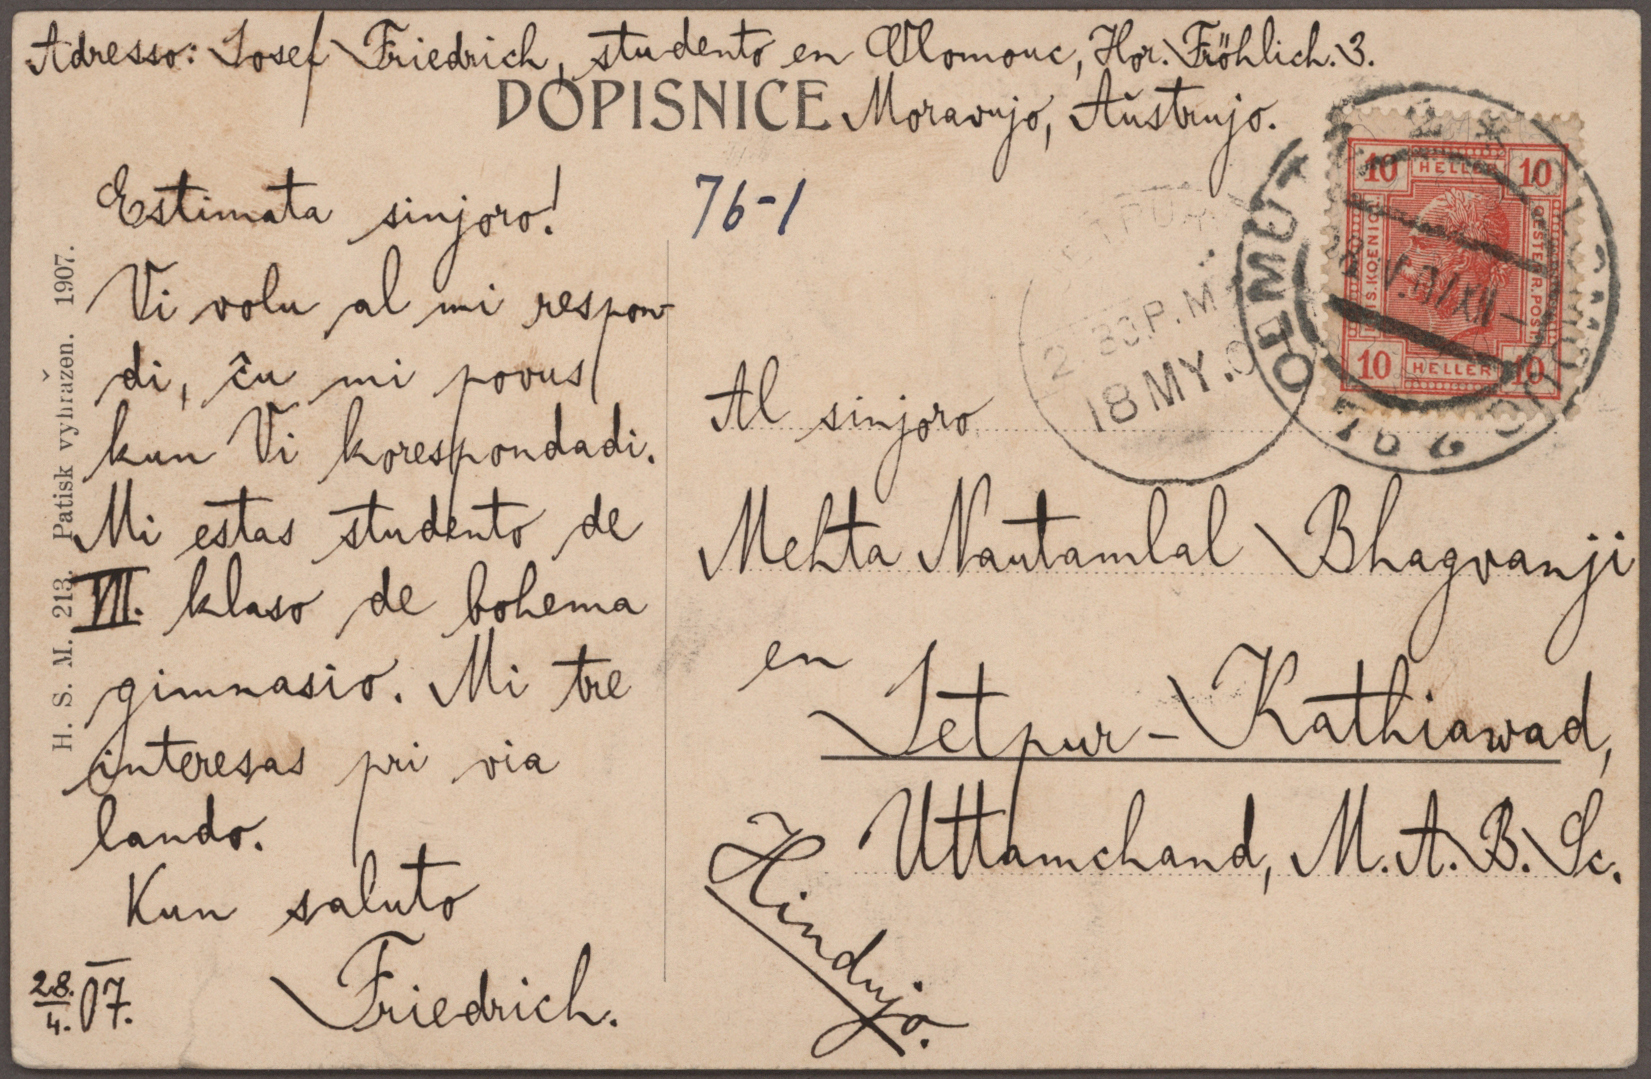 Adresso: Josef Friedrich, studento en Olomouc, Hor. Fröhlich. 3.
DOPISNICE Moravujo, Aŭstrujo.
Estimata sinjoro!
Vi volu al mi respon-
di, ĉu mi povus
kun Vi korespondadi.
Mi estas studento de
VII. klaso de bohema
gimnasio. Mi tre
interesas pri via
lando.
Kun saluto
Friedrich.
28./4. 07.
H. S. M. 213. Patisk vyhražen. 1907.
76-1
JETPUR
2.30 P.M.
18 MY.0
OLMÜTZ *
OLOMOUC
10 HELLER 10
KAIS.KOENIGL. OESTERR.POST
10 HELLER 10
Al sinjoro
Mehta Nautamlal Bhagvanji
en
Jetpur-Kathiawad,
Uttamchand, M.A.B.Sc.
Hindujo.